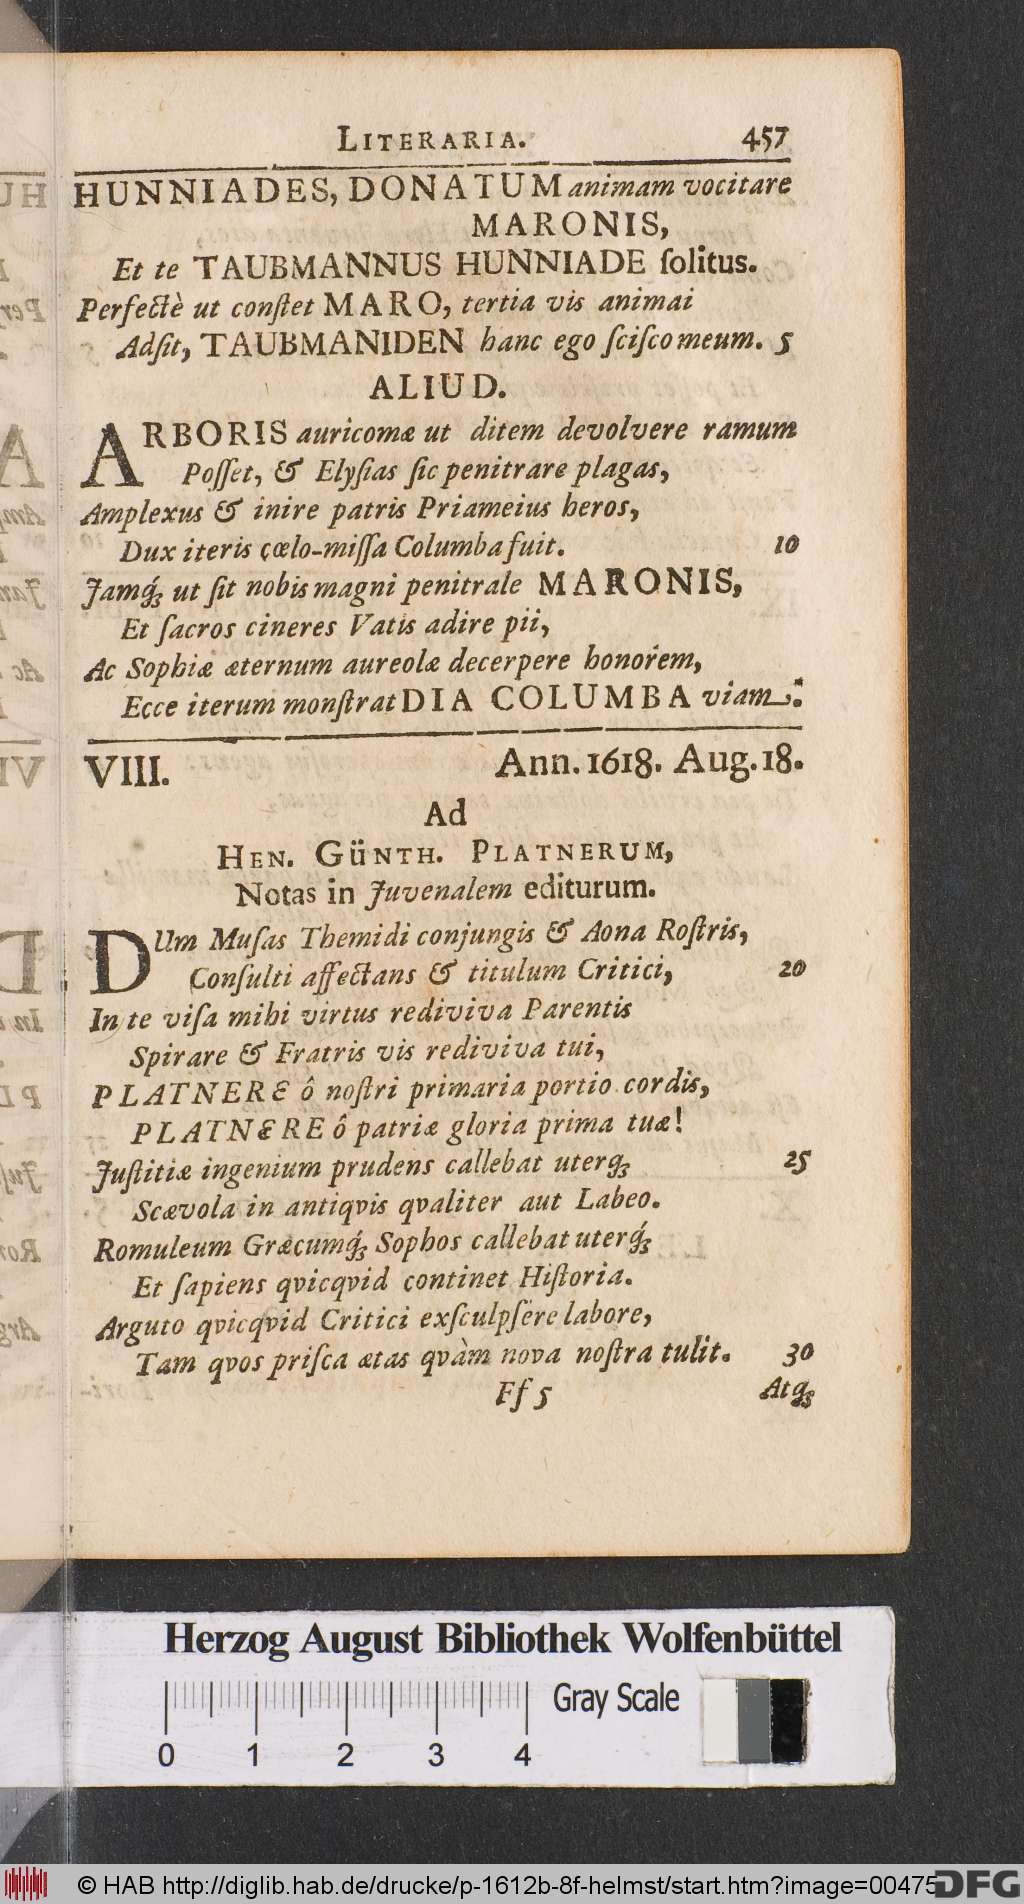 LITERARIA. 457
HUNNIADES, DONATUM animam vocitare
MARONIS,
Et te TAUBMANNUS HUNNIADE ſolitus.
Perfectè ut conſtet MARO, tertia vis animai
Adſit, TAUBMANIDEN hanc ego ſciſco meum. 5
ALIUD.
ARBORIS auricomæ ut ditem devolvere ramum
Poſſet, & Elyſias ſic penitrare plagas,
Amplexus & inire patris Priameius heros,
Dux iteris cœlo-miſſa Columba fuit. 10
Jamq́ꝫ ut ſit nobis magni penitrale MARONIS,
Et ſacros cineres Vatis adire pii,
Ac Sophiæ æternum aureolæ decerpere honorem,
Ecce iterum monſtrat DIA COLUMBA viam.
VIII. Ann. 1618. Aug. 18.
Ad
HEN. GÜNTH. PLATNERUM,
Notas in Juvenalem editurum.
DUm Muſas Themidi conjungis & Aona Roſtris,
Conſulti affectans & titulum Critici, 20
In te viſa mihi virtus rediviva Parentis
Spirare & Fratris vis rediviva tui,
PLATNERE ô noſtri primaria portio cordis,
PLATNERE ô patriæ gloria prima tuæ!
Juſtitiæ ingenium prudens callebat uterqꝫ 25
Scævola in antiqvis qvaliter aut Labeo.
Romuleum Græcumq́ꝫ Sophos callebat uterq́ꝫ
Et ſapiens qvicqvid continet Hiſtoria.
Arguto qvicqvid Critici exſculpſère labore,
Tam qvos priſca ætas qvàm nova noſtra tulit. 30
Ff 5 Atqꝫ
Herzog August Bibliothek Wolfenbüttel
Gray Scale
0 1 2 3 4
© HAB http://diglib.hab.de/drucke/p-1612b-8f-helmst/start.htm?image=00475
DFG